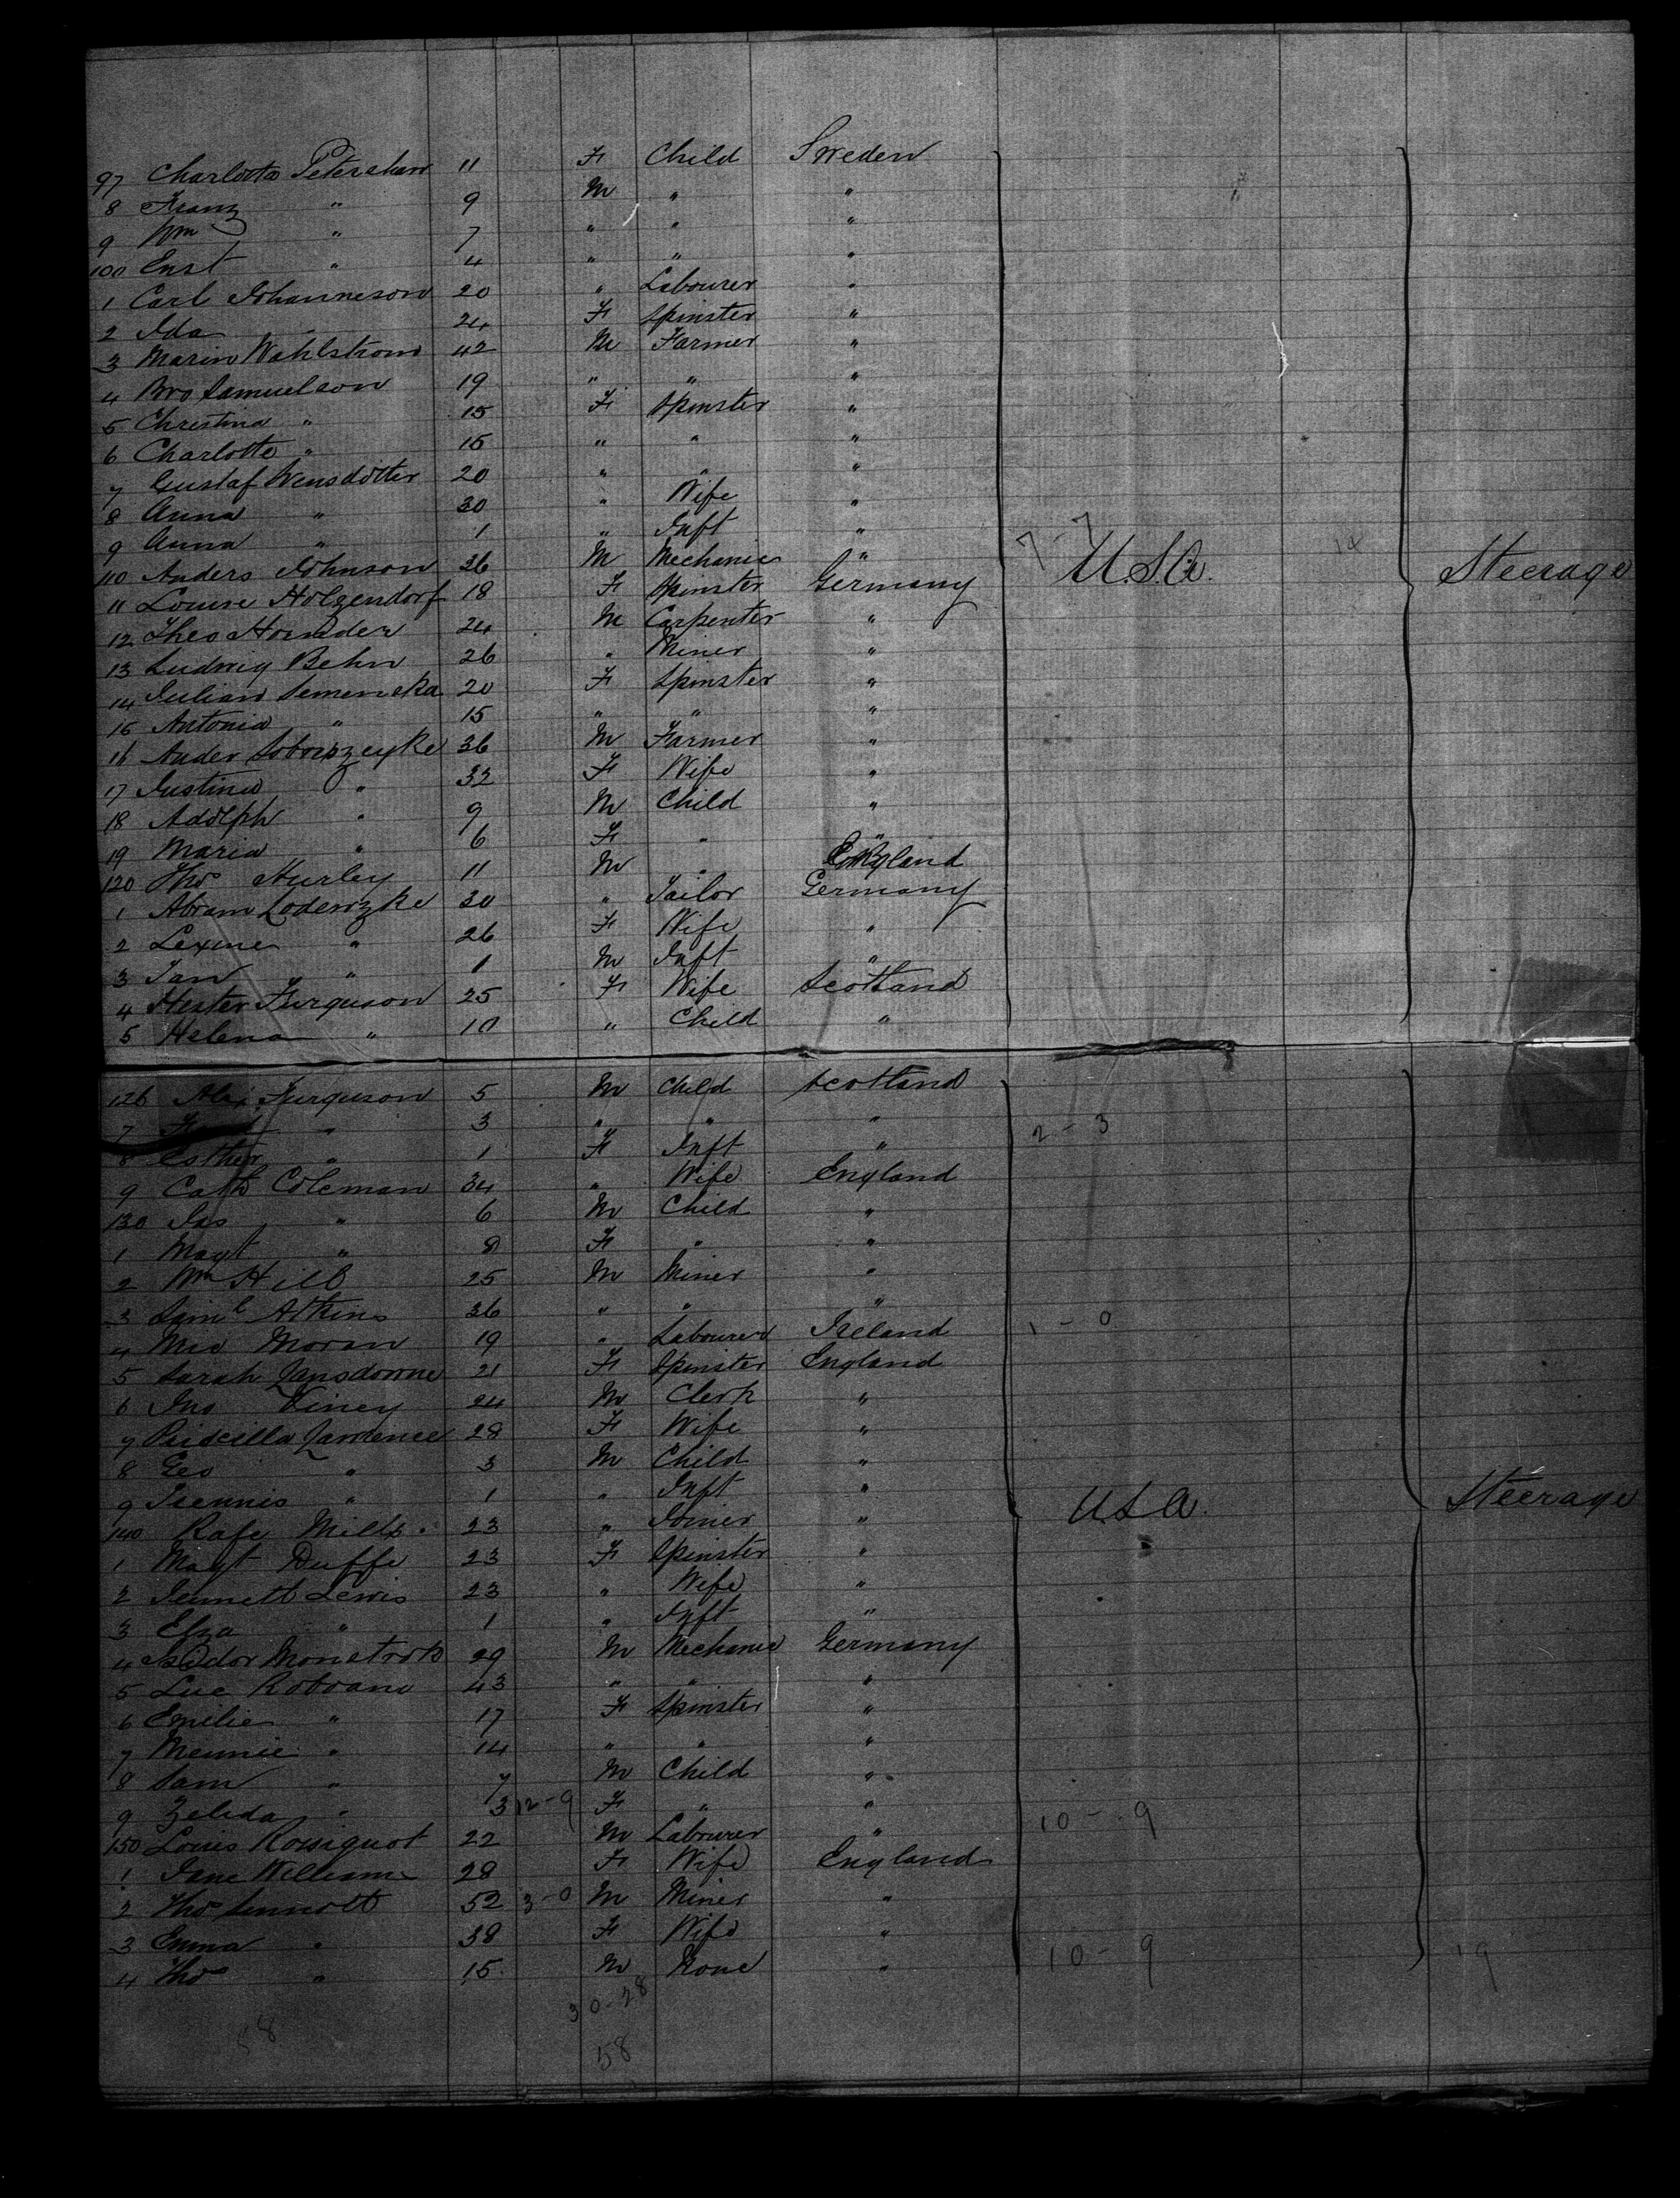 97 Charlotta Petersham 11 F Child Sweden
8 Franz " 9 M " "
9 Wm " 7 " " "
100 Enst " 4 " " "
1 Carl Johanneson 20 " Labourer "
2 Ida " 24 F Spinster "
3 Marin Wahlstrom 42 M Farmer "
4 Bro Samuelson 19 " " "
5 Christina " 15 F Spinster "
6 Charlotte " 15 " " "
7 Gustaf Wensdotter 20 " " "
8 Anna " 30 " Wife "
9 Anna " 1 " Inft "
7-7
110 Anders Johnson 26 M Mechanic "
14
11 Louise Holzendorf 18 F Spinster Germany U.S.A. Steerage
12 Theo 24 M Carpenter "
13 Ludwig Behn 26 " Miner "
14 Julian Semenska 20 F Spinster "
15 Antonia " 15 " " "
16 Ander 36 M Farmer "
17 Justina " 32 F Wife "
18 Adolph " 9 M Child "
19 Maria " 6 F " "
120 Thos Hurley 11 M " England
1 Abram Loderozke 30 " Tailor Germany
2 Lexine " 26 F Wife "
3 Jan " 1 M Inft "
4 Hester Furguson 25 F Wife Scotland
5 Helena " 10 " Child "
126 Alex Furguson 5 M Child Scotland
7 " 3 " " " 2-3
8 Esther " 1 F Inft "
9 Cath Coleman 34 " Wife England
130 Jas " 6 M Child "
1 Magt " 8 F " "
2 Wm Hill 25 M Miner "
3 Saml Atkins 36 " " "
4 Mid Moran 19 " Labourer Ireland 1-0
5 Sarah Lansdowne 21 F Spinster England
6 Jno Viney 24 M Clerk "
7 Priscilla Lawrence 28 F Wife "
8 Geo " 3 M Child "
9 Jiennis " 1 " Inft "
140 Rafe Mills 23 " Joiner " U.S.A. Steerage
1 Magt Duffe 23 F Spinster "
2 Jennett Lewis 23 " Wife "
3 Elza " 1 " Inft "
4 Isodor Monstrob 29 M Mechanic Germany
5 Luc Robvane 43 " " "
6 Emilie " 17 F Spinster "
7 Mennie " 14 " " "
8 Sam " 7 M Child "
9 Zelida " 3 12-9 F " " 10-9
150 Louis Rossignot 22 M Labourer "
1 Jane William 28 F Wife England
2 Thos Sennott 52 3-0 M Miner "
3 Emma " 38 F Wife "
4 Thos " 15 M None " 10-9 19
30-28
58 58